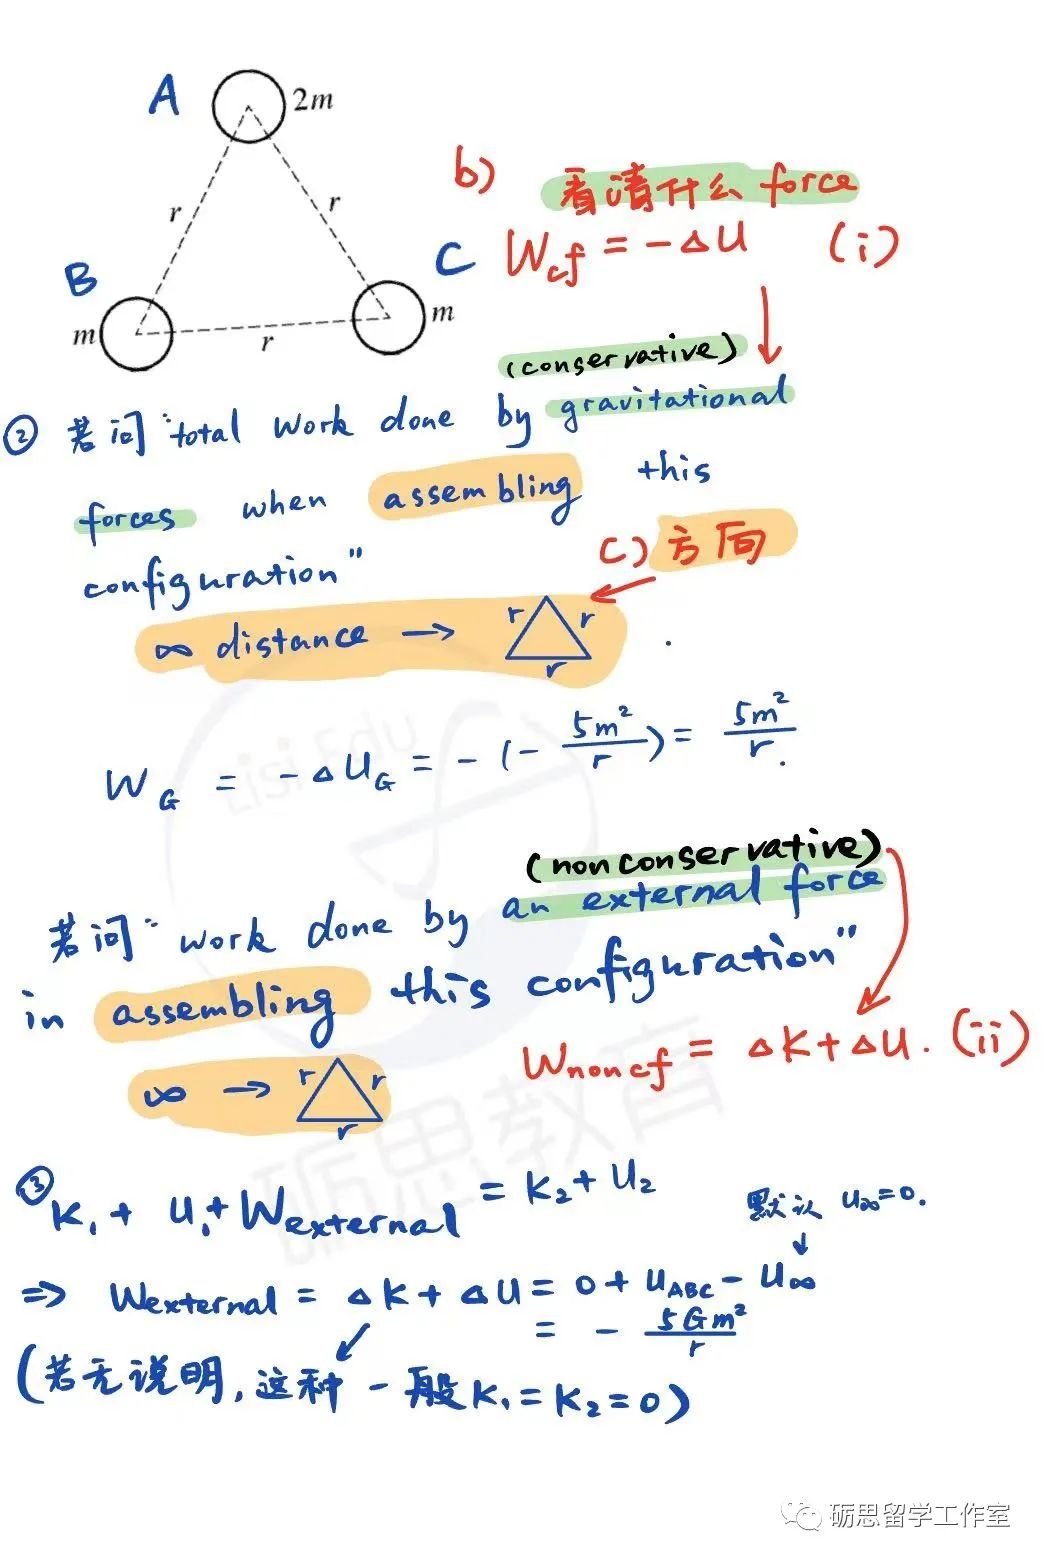 A
2m
r
r
B
C
m
m
r
b) 看清什么 force
Wcf = -△U (i)
(conservative)
② 若问"total work done by gravitational
forces when assembling this
configuration"
c) 方向
∞ distance → r r r
W_G = -△U_G = -(-5m²/r) = 5m²/r.
(nonconservative)
若问"work done by an external force
in assembling this configuration"
Wnoncf = △K+△U. (ii)
∞ → r r r
③ K₁+ U₁+Wexternal = K₂+U₂
默认 U∞=0.
⇒ Wexternal = △K+△U = 0+U_ABC-U∞
= - 5Gm²/r
(若无说明,这种一般K₁=K₂=0)
lisi Edu
砺思教育
砺思留学工作室